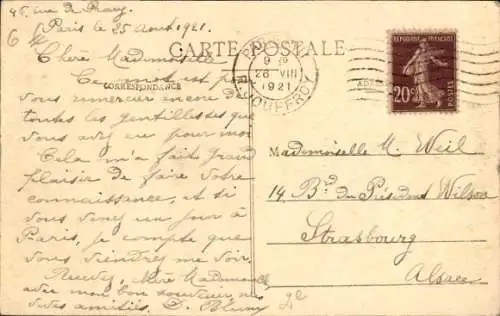 46, rue de
Paris le 25 août 1921.
6
Chère Mademoiselle
CARTE POSTALE
CORRESPONDANCE
Ce mot est p
vous remercier encore de
toutes les gentillesses que
vous avez eu pour moi
Cela m'a fait grand
plaisir de faire votre
connaissance, et si
vous venez un jour à
Paris, je compte que
vous viendrez me voir.
Recevez, chère Mademoiselle
avec mon bon souvenir mes
amitiés. D.
PARIS
9
26 VIII
1921
R. JOUFFROY
REPUBLIQUE FRANÇAISE
20c
POSTES
Mademoiselle M. Weil
14 Bd du Président Wilson
Strasbourg
Alsace